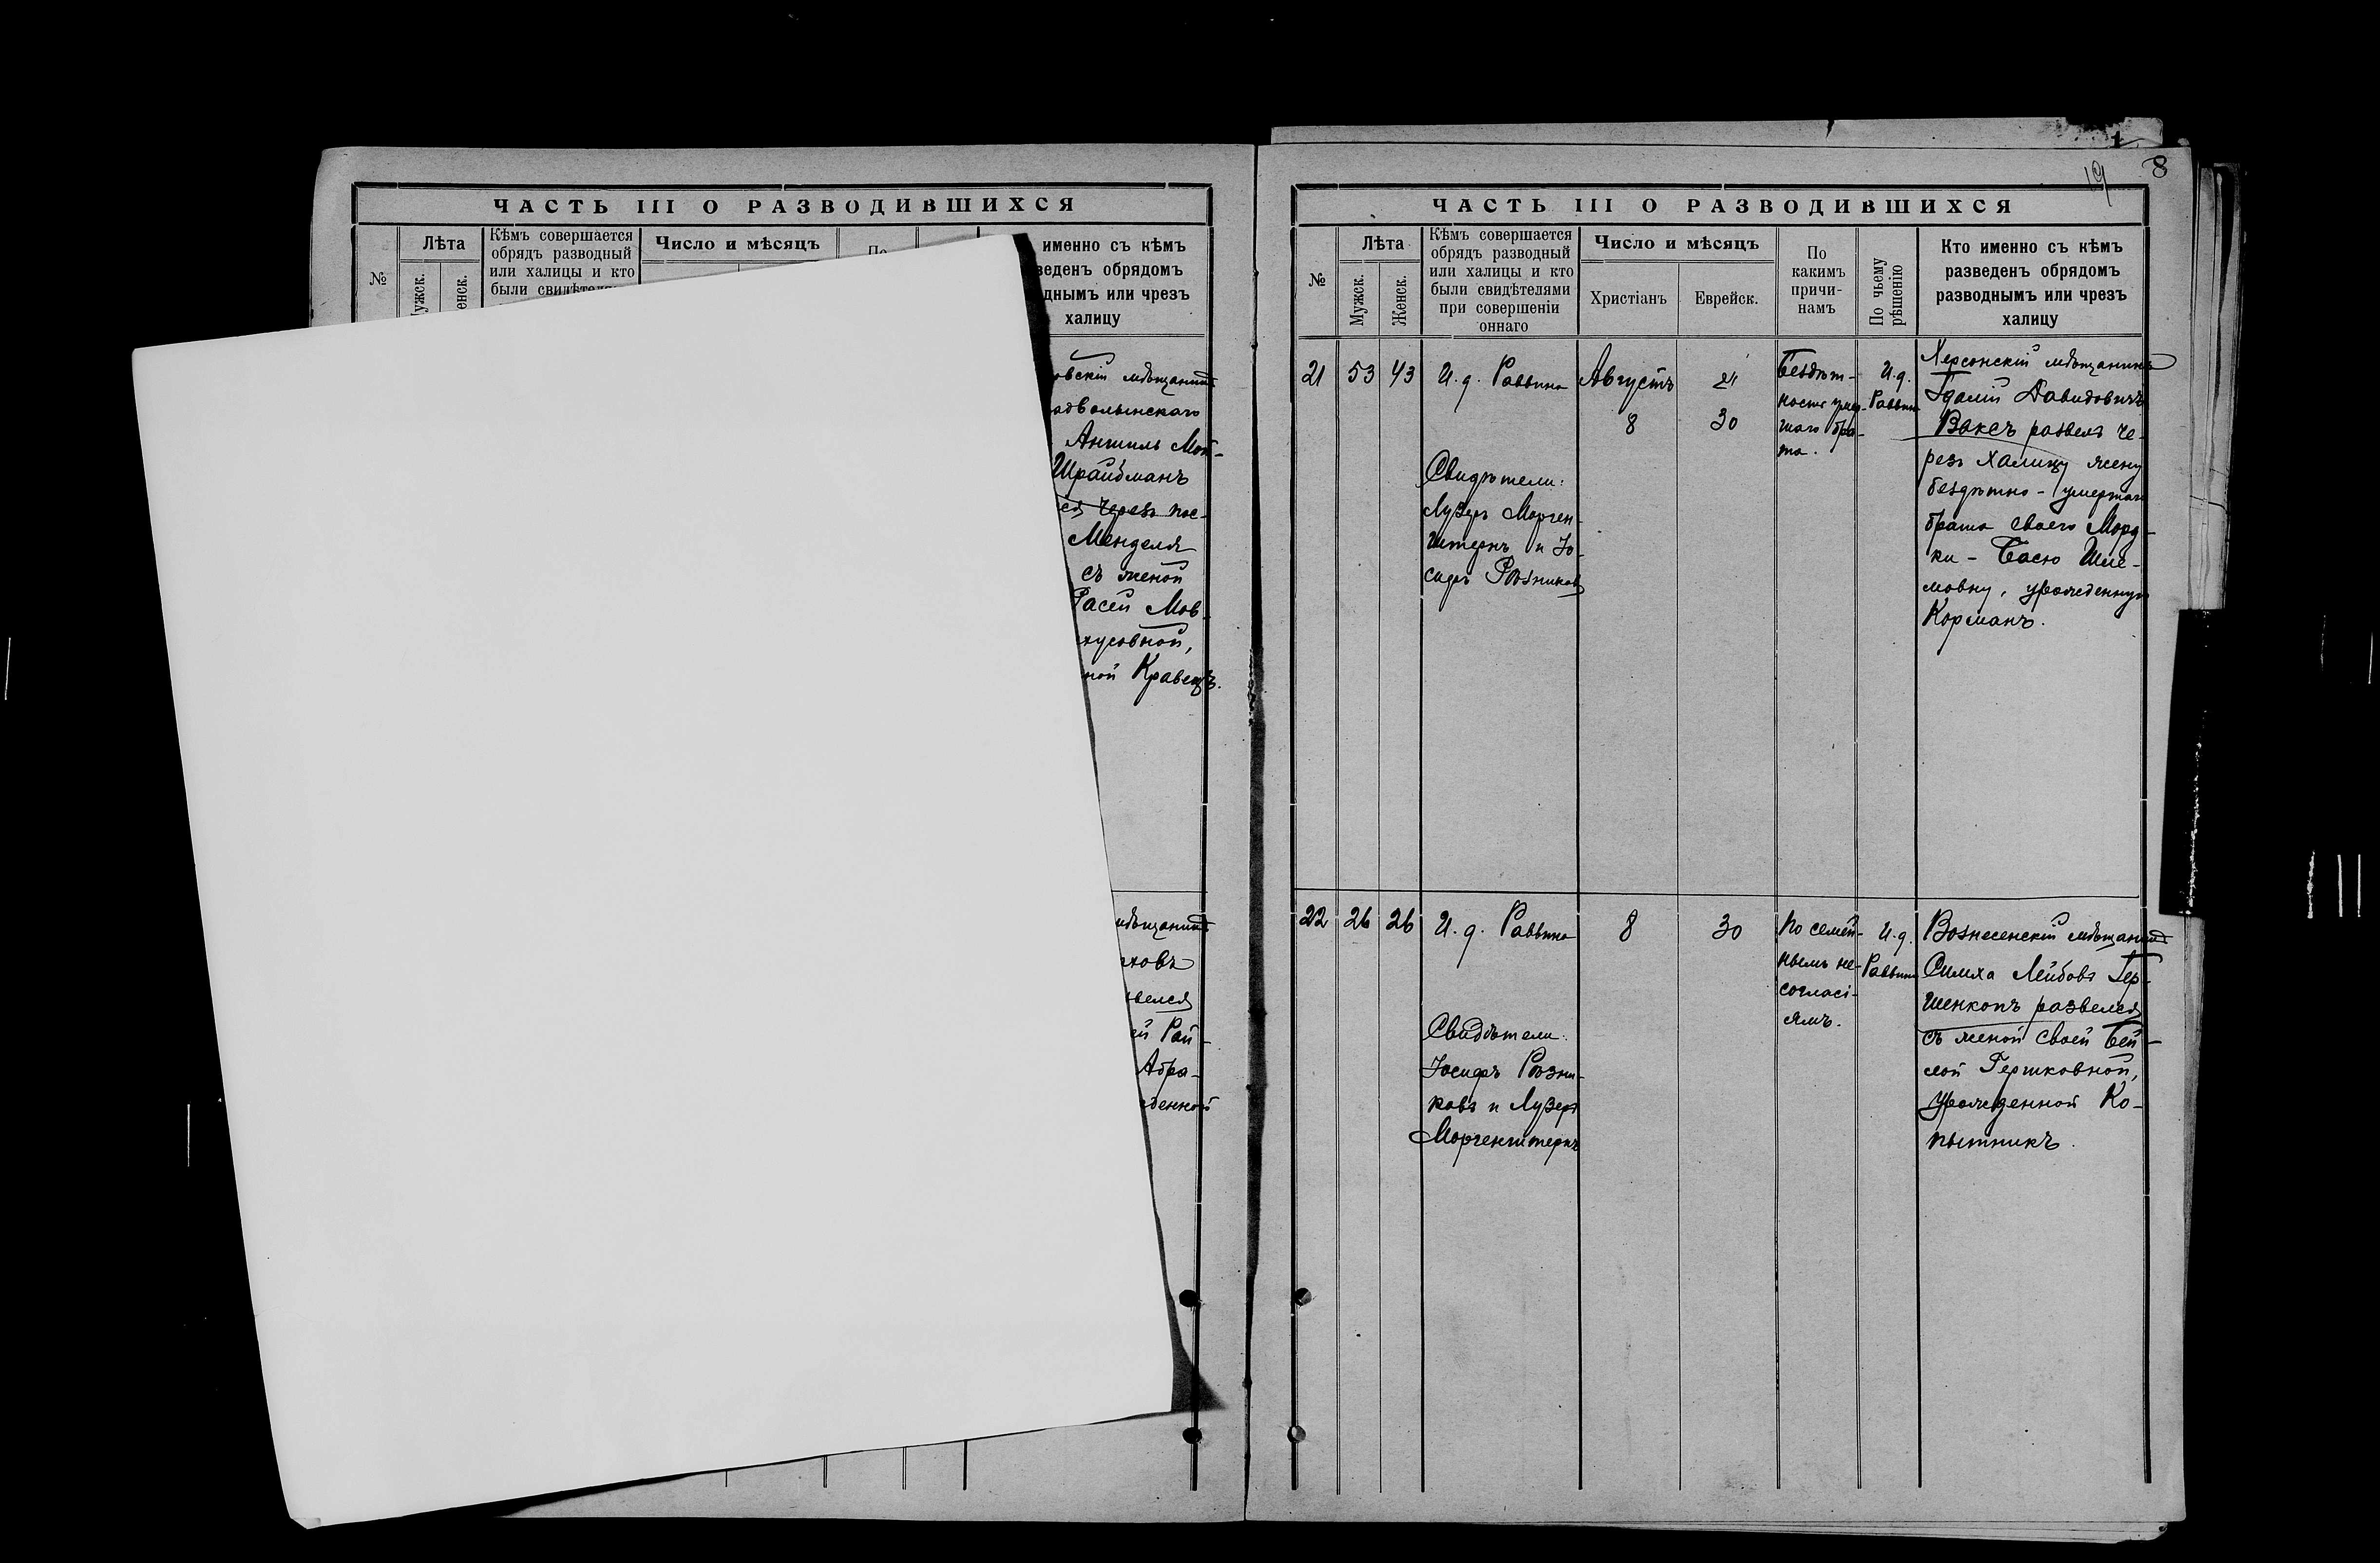 ЧАСТЬ III О РАЗВОДИВШИХСЯ
№
Лѣта
Кѣмъ совершается
обрядъ разводный
или халицы и кто
были
Число и мѣсяцъ
По
именно съ кѣмъ
обрядомъ
или чрезъ
халицу
мѣщанинъ
Аншиль Мой-
Шрайбманъ
черезъ пос-
Менделя
съ женой
Расей Мов-
Кравецъ.
Рай-
Абра-
8
19
ЧАСТЬ III О РАЗВОДИВШИХСЯ
№
Лѣта
Мужск.
Женск.
Кѣмъ совершается
обрядъ разводный
или халицы и кто
были свидѣтелями
при совершеніи
оннаго
Число и мѣсяцъ
Христіанъ
Еврейск.
По
какимъ
причи-
намъ
По чьему
рѣшенію
Кто именно съ кѣмъ
разведенъ обрядомъ
разводнымъ или чрезъ
халицу
21
53
43
И. д. Раввина
Свидѣтели:
Лузеръ Морген-
штернъ и Іо-
сифъ Розниковъ
Августъ
8
30
Бездѣт-
ность умер-
шаго бра-
та.
И. д.
Раввина
Херсонскій мѣщанинъ
Гдалій Давидовичъ
Ваксъ развелъ че-
резъ халицу жену
бездѣтно-умершаго
брата своего Морд-
ки - Басю Шле-
мовну, урожденную
Корманъ.
22
26
26
И. д. Раввина
Свидѣтели:
Іосифъ Розни-
ковъ и Лузеръ
Моргенштернъ
8
30
По семей-
нымъ не-
согласі-
ямъ.
И. д.
Раввина
Вознесенскій мѣщанинъ
Симха Лейбовъ Гер-
шенкопъ развелся
съ женой своей Бей-
лой Гершковной,
урожденной Ко-
пытникъ.